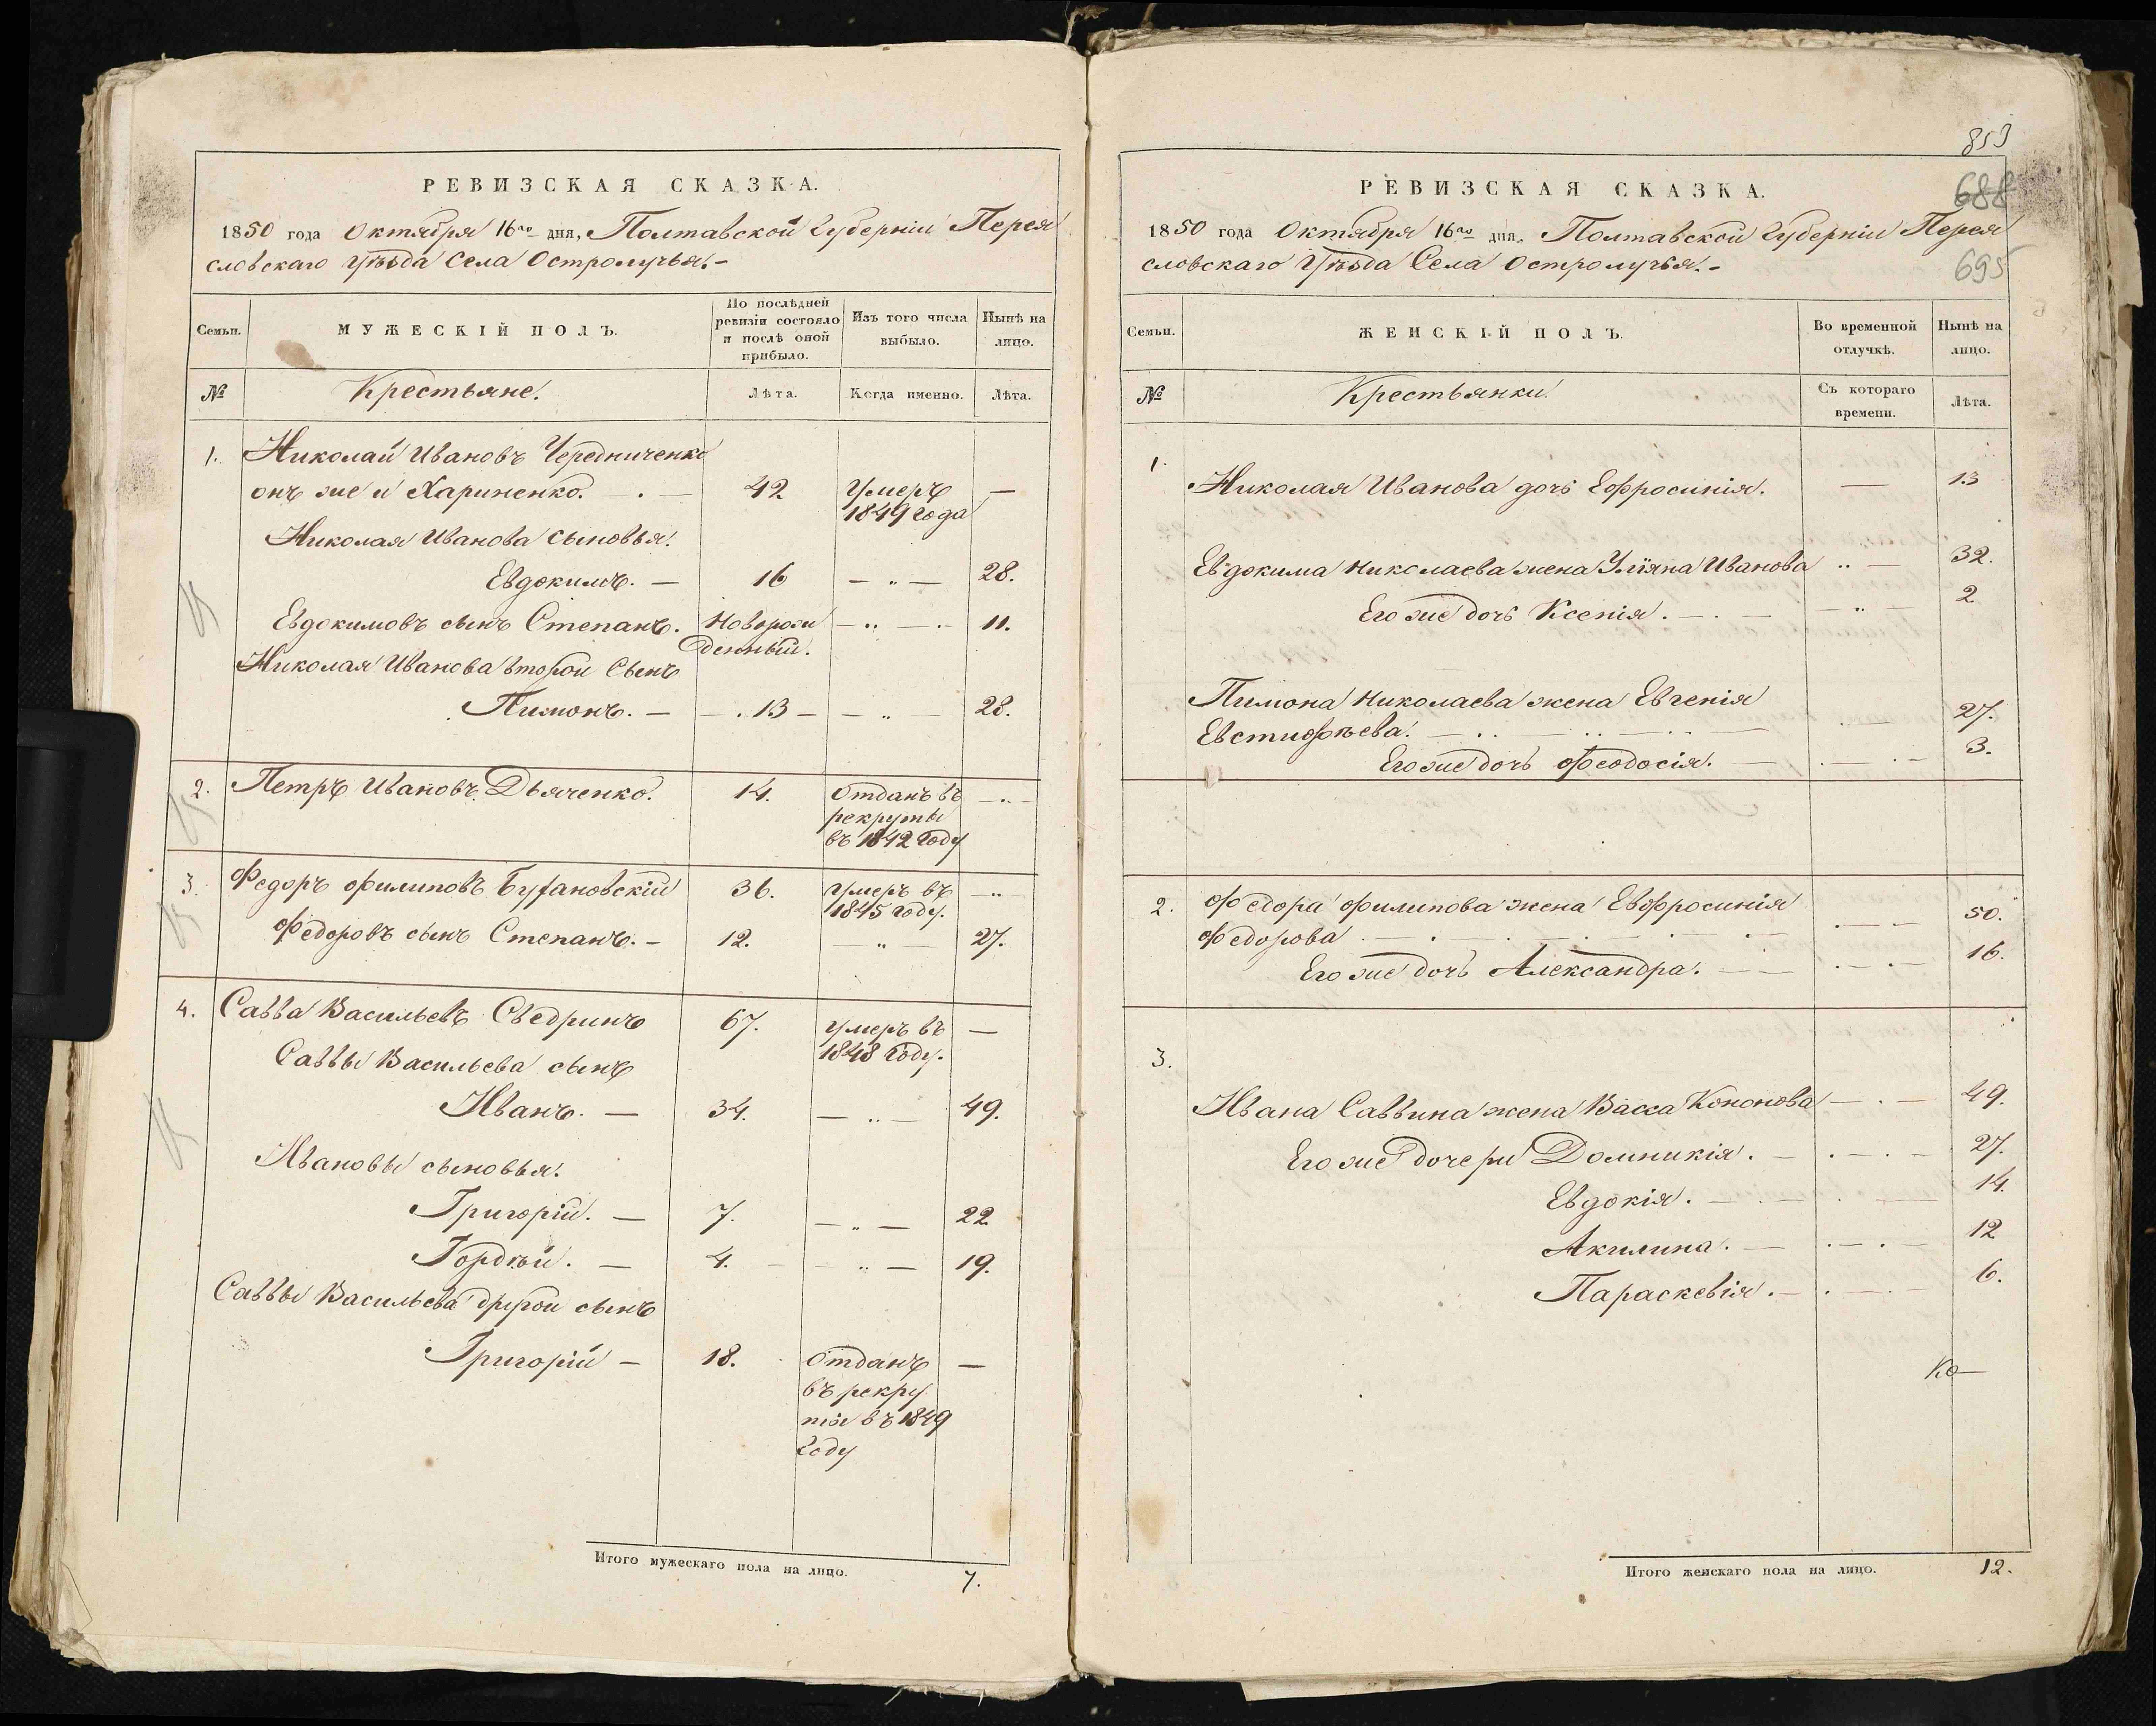 РЕВИЗСКАЯ СКАЗКА.
1850 года Октября 16го дня, Полтавской Губерніи Перея
словскаго Уѣзда Села Остролучья.-
Семьи.
МУЖЕСКІЙ ПОЛЪ.
По послѣдней
ревизіи состояло
и послѣ оной
прибыло.
Изъ того числа
выбыло.
Нынѣ на
лицо.
№
Крестьяне.
Лѣта.
Когда именно.
Лѣта.
1. Николай Ивановъ Чередниченко
онъ же и Хариненко. — 42 Умеръ —
1849 года
Николая Иванова сыновья.
Евдокимъ. — 16 — „ — 28.
Евдокимовъ сынъ Степанъ. Новорож — „ — 11.
денный.
Николая Иванова второй Сынъ
Пимонъ. — 13 — „ — 28.
2. Петръ Ивановъ Дьяченко. 14. Отданъ въ — „ —
рекруты
въ 1842 Году
3. Федоръ Филиповъ 36. Умеръ въ — „ —
1845 году.
Федоровъ сынъ Степанъ. — 12. — „ — 27.
4. Савва Васильевъ Сведринъ 67. умеръ въ —
1848 Году.
Саввы Васильева сынъ
Иванъ. — 34. — „ — 49.
Ивановы сыновья.
Григорій. — 7. — „ — 22
Гордѣй. — 4. — „ — 19.
Саввы Васильева другой сынъ
Григорій — 18. Отданъ —
въ рекру
ты въ 1849
Году
Итого мужескаго пола на лицо. 7.
853
688
695
РЕВИЗСКАЯ СКАЗКА.
1850 года Октября 16го дня, Полтавской Губерніи Перея
словскаго Уѣзда Села Остролучья.-
Семьи.
ЖЕНСКІЙ ПОЛЪ.
Во временной
отлучкѣ.
Нынѣ на
лицо.
№
Крестьянки.
Съ котораго
времени.
Лѣта.
1. Николая Иванова дочь Ефросинія. — 13
Евдокима Николаева жена Уліяна Иванова „ — 32.
Его же дочь Ксенія. — „ — 2
Пимона Николаева жена Евгенія
Евстифѣева. — 27.
Его же дочь Феодосія. — 3.
2. Федора Филипова жена Евфросинія
Федорова — 50.
Его же дочь Александра. — 16.
3.
Ивана Саввина жена Васса Кононова — 49.
Его же дочери Домникія. — 27.
Евдокія. — 14.
Акилина. — 12
Параскевія. — 6.
Ко—
Итого женскаго пола на лицо. 12.